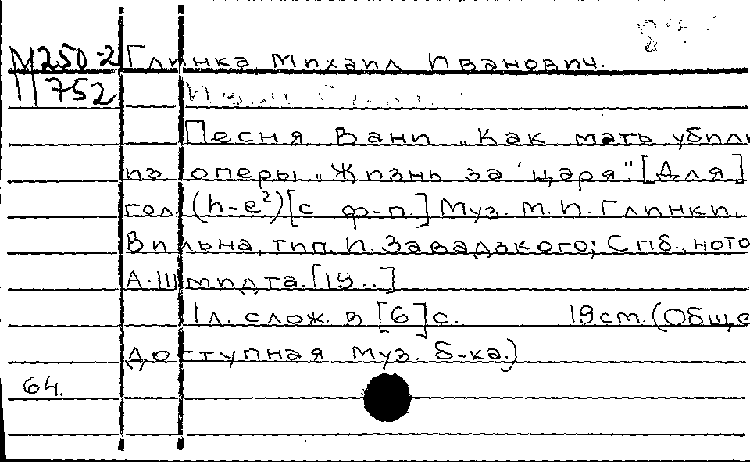 М250-2 Глинка Михаил Иванович.
П752
Песня Вани „Как мать убили
из оперы „Жизнь за царя" [Для]
гол. (h-e²) [с ф-п.] Муз. М. И. Глинки.
Вильна, тип. И. Завадзкого; Спб., ното
А. Шмидта. [19..]
1л. слож. в [6] с. 19 cm. (Обще
доступная муз. б-ка.)
64.